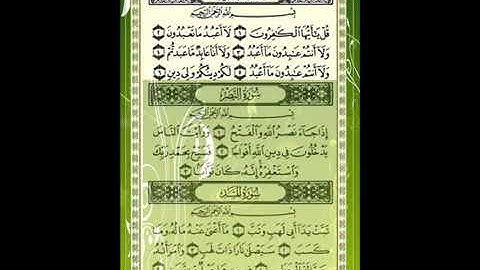 بِسْمِ ٱللَّهِ ٱلرَّحْمَٰنِ ٱلرَّحِيمِ
قُلْ يَٰٓأَيُّهَا ٱلْكَٰفِرُونَ ١ لَآ أَعْبُدُ مَا تَعْبُدُونَ ٢
وَلَآ أَنتُمْ عَٰبِدُونَ مَآ أَعْبُدُ ٣ وَلَآ أَنَا۠ عَابِدٌ مَّا عَبَدتُّمْ ٤
وَلَآ أَنتُمْ عَٰبِدُونَ مَآ أَعْبُدُ ٥ لَكُمْ دِينُكُمْ وَلِىَ دِينِ ٦
سُورَةُ النَّصْرِ
بِسْمِ ٱللَّهِ ٱلرَّحْمَٰنِ ٱلرَّحِيمِ
إِذَا جَآءَ نَصْرُ ٱللَّهِ وَٱلْفَتْحُ ١ وَرَأَيْتَ ٱلنَّاسَ
يَدْخُلُونَ فِى دِينِ ٱللَّهِ أَفْوَاجًا ٢ فَسَبِّحْ بِحَمْدِ رَبِّكَ
وَٱسْتَغْفِرْهُ إِنَّهُۥ كَانَ تَوَّابًۢا ٣
سُورَةُ المَسَدِ
بِسْمِ ٱللَّهِ ٱلرَّحْمَٰنِ ٱلرَّحِيمِ
تَبَّتْ يَدَآ أَبِى لَهَبٍ وَتَبَّ ١ مَآ أَغْنَىٰ عَنْهُ مَالُهُۥ وَمَا
كَسَبَ ٢ سَيَصْلَىٰ نَارًا ذَاتَ لَهَبٍ ٣ وَٱمْرَأَتُهُۥ